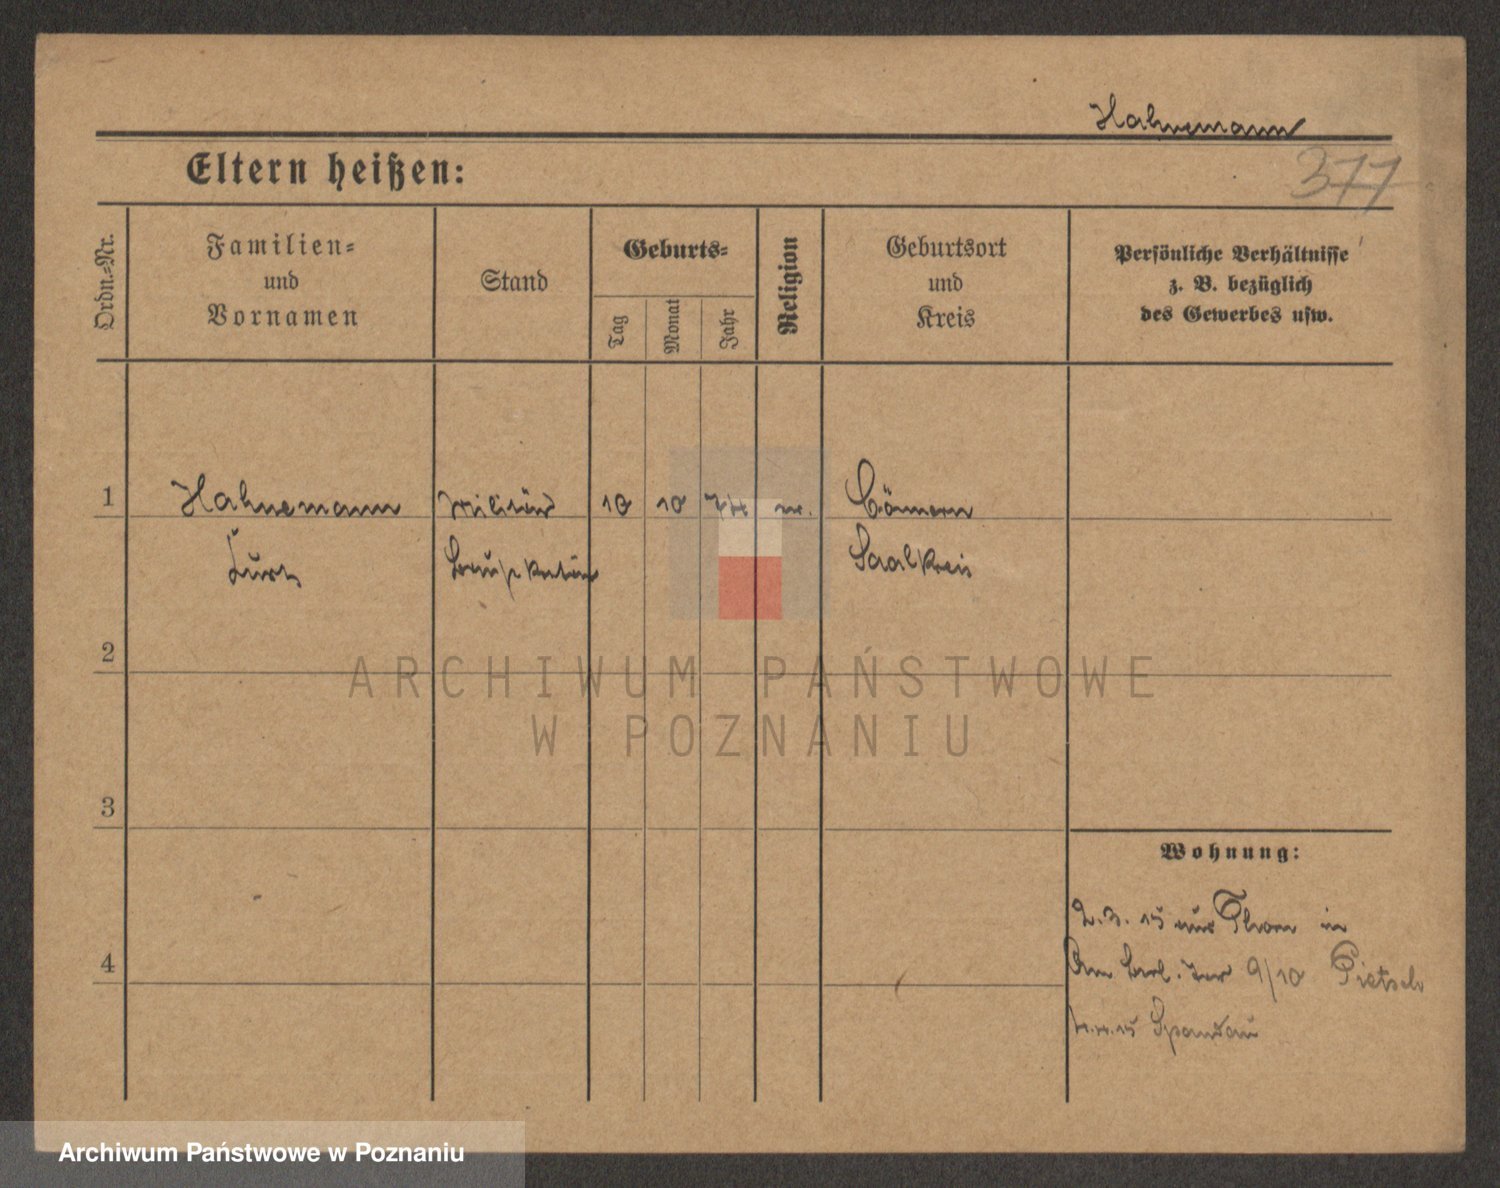 Hahnemann
377
Eltern heißen:
Ordn.=Nr.
Familien=
und
Vornamen
Stand
Geburts=
Tag
Monat
Jahr
Religion
Geburtsort
und
Kreis
Persönliche Verhältnisse
z. B. bezüglich
des Gewerbes usw.
1 Hahnemann Militär 10 10 74 Cönnern
Kurt Saalkreis
2
3
4
Wohnung:
2.3.15 aus Thorn in
Am Berl. Tor 9/10 Pietsch
Spandau
ARCHIWUM PAŃSTWOWE
W POZNANIU
Archiwum Państwowe w Poznaniu